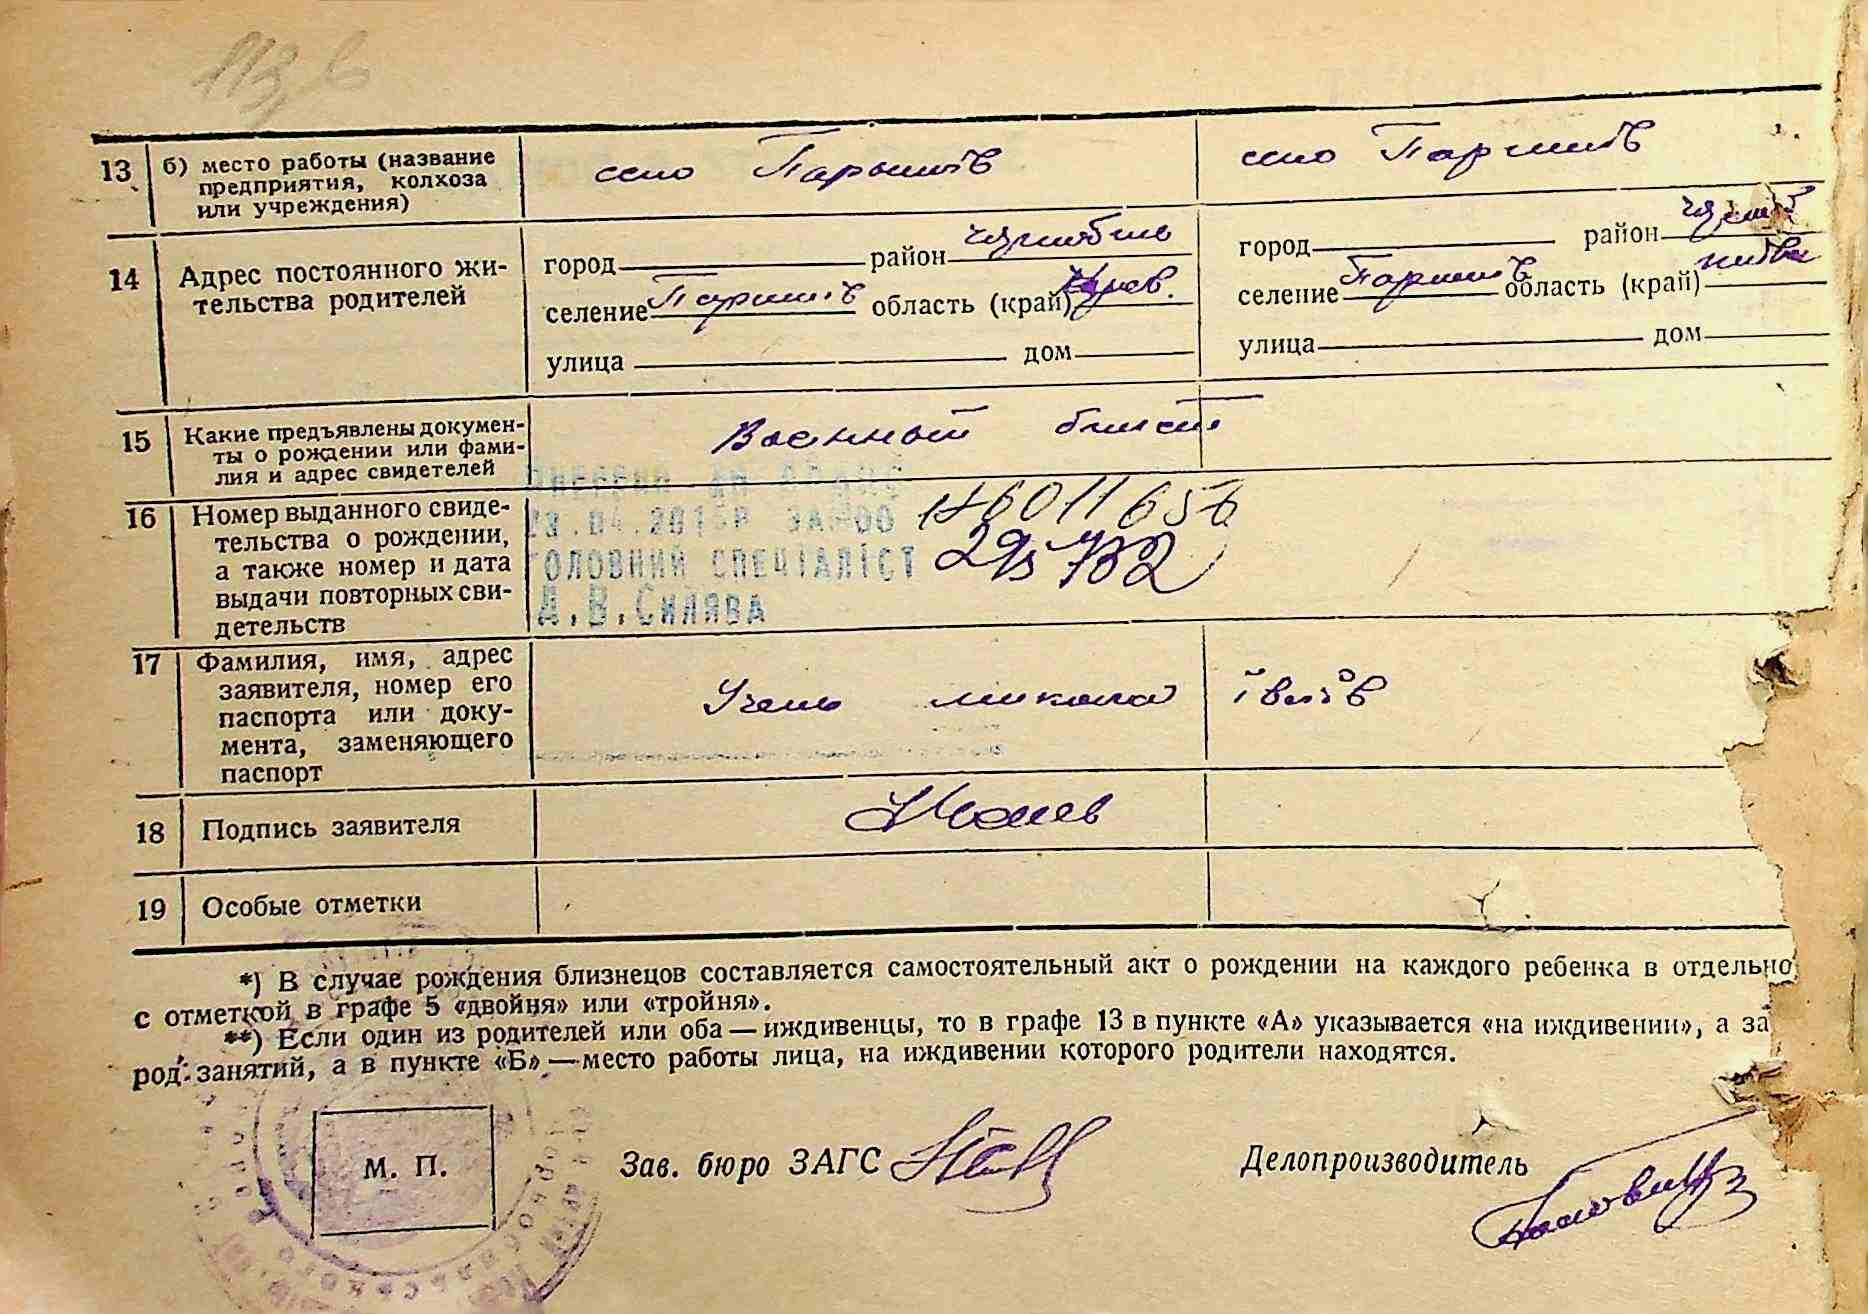 113 в
13 б) место работы (название предприятия, колхоза или учреждения) село Паришів село Паришів
14 Адрес постоянного жи-
тельства родителей
город район Чорнобиль город район
селение Паришів область (край) Київ. селение Паришів область (край)
улица дом улица дом
15 Какие предъявлены докумен-
ты о рождении или фами-
лия и адрес свидетелей
Военный билет
16 Номер выданного свиде-
тельства о рождении,
а также номер и дата
выдачи повторных сви-
детельств
ГОЛОВНИЙ СПЕЦІАЛІСТ
Д.В.Силява
295732
17 Фамилия, имя, адрес
заявителя, номер его
паспорта или доку-
мента, заменяющего
паспорт
Учень Микола
18 Подпись заявителя
19 Особые отметки
*) В случае рождения близнецов составляется самостоятельный акт о рождении на каждого ребенка в отдельно
с отметкой в графе 5 «двойня» или «тройня».
**) Если один из родителей или оба — иждивенцы, то в графе 13 в пункте «А» указывается «на иждивении», а за
род занятий, а в пункте «Б» — место работы лица, на иждивении которого родители находятся.
М. П. Зав. бюро ЗАГС Делопроизводитель